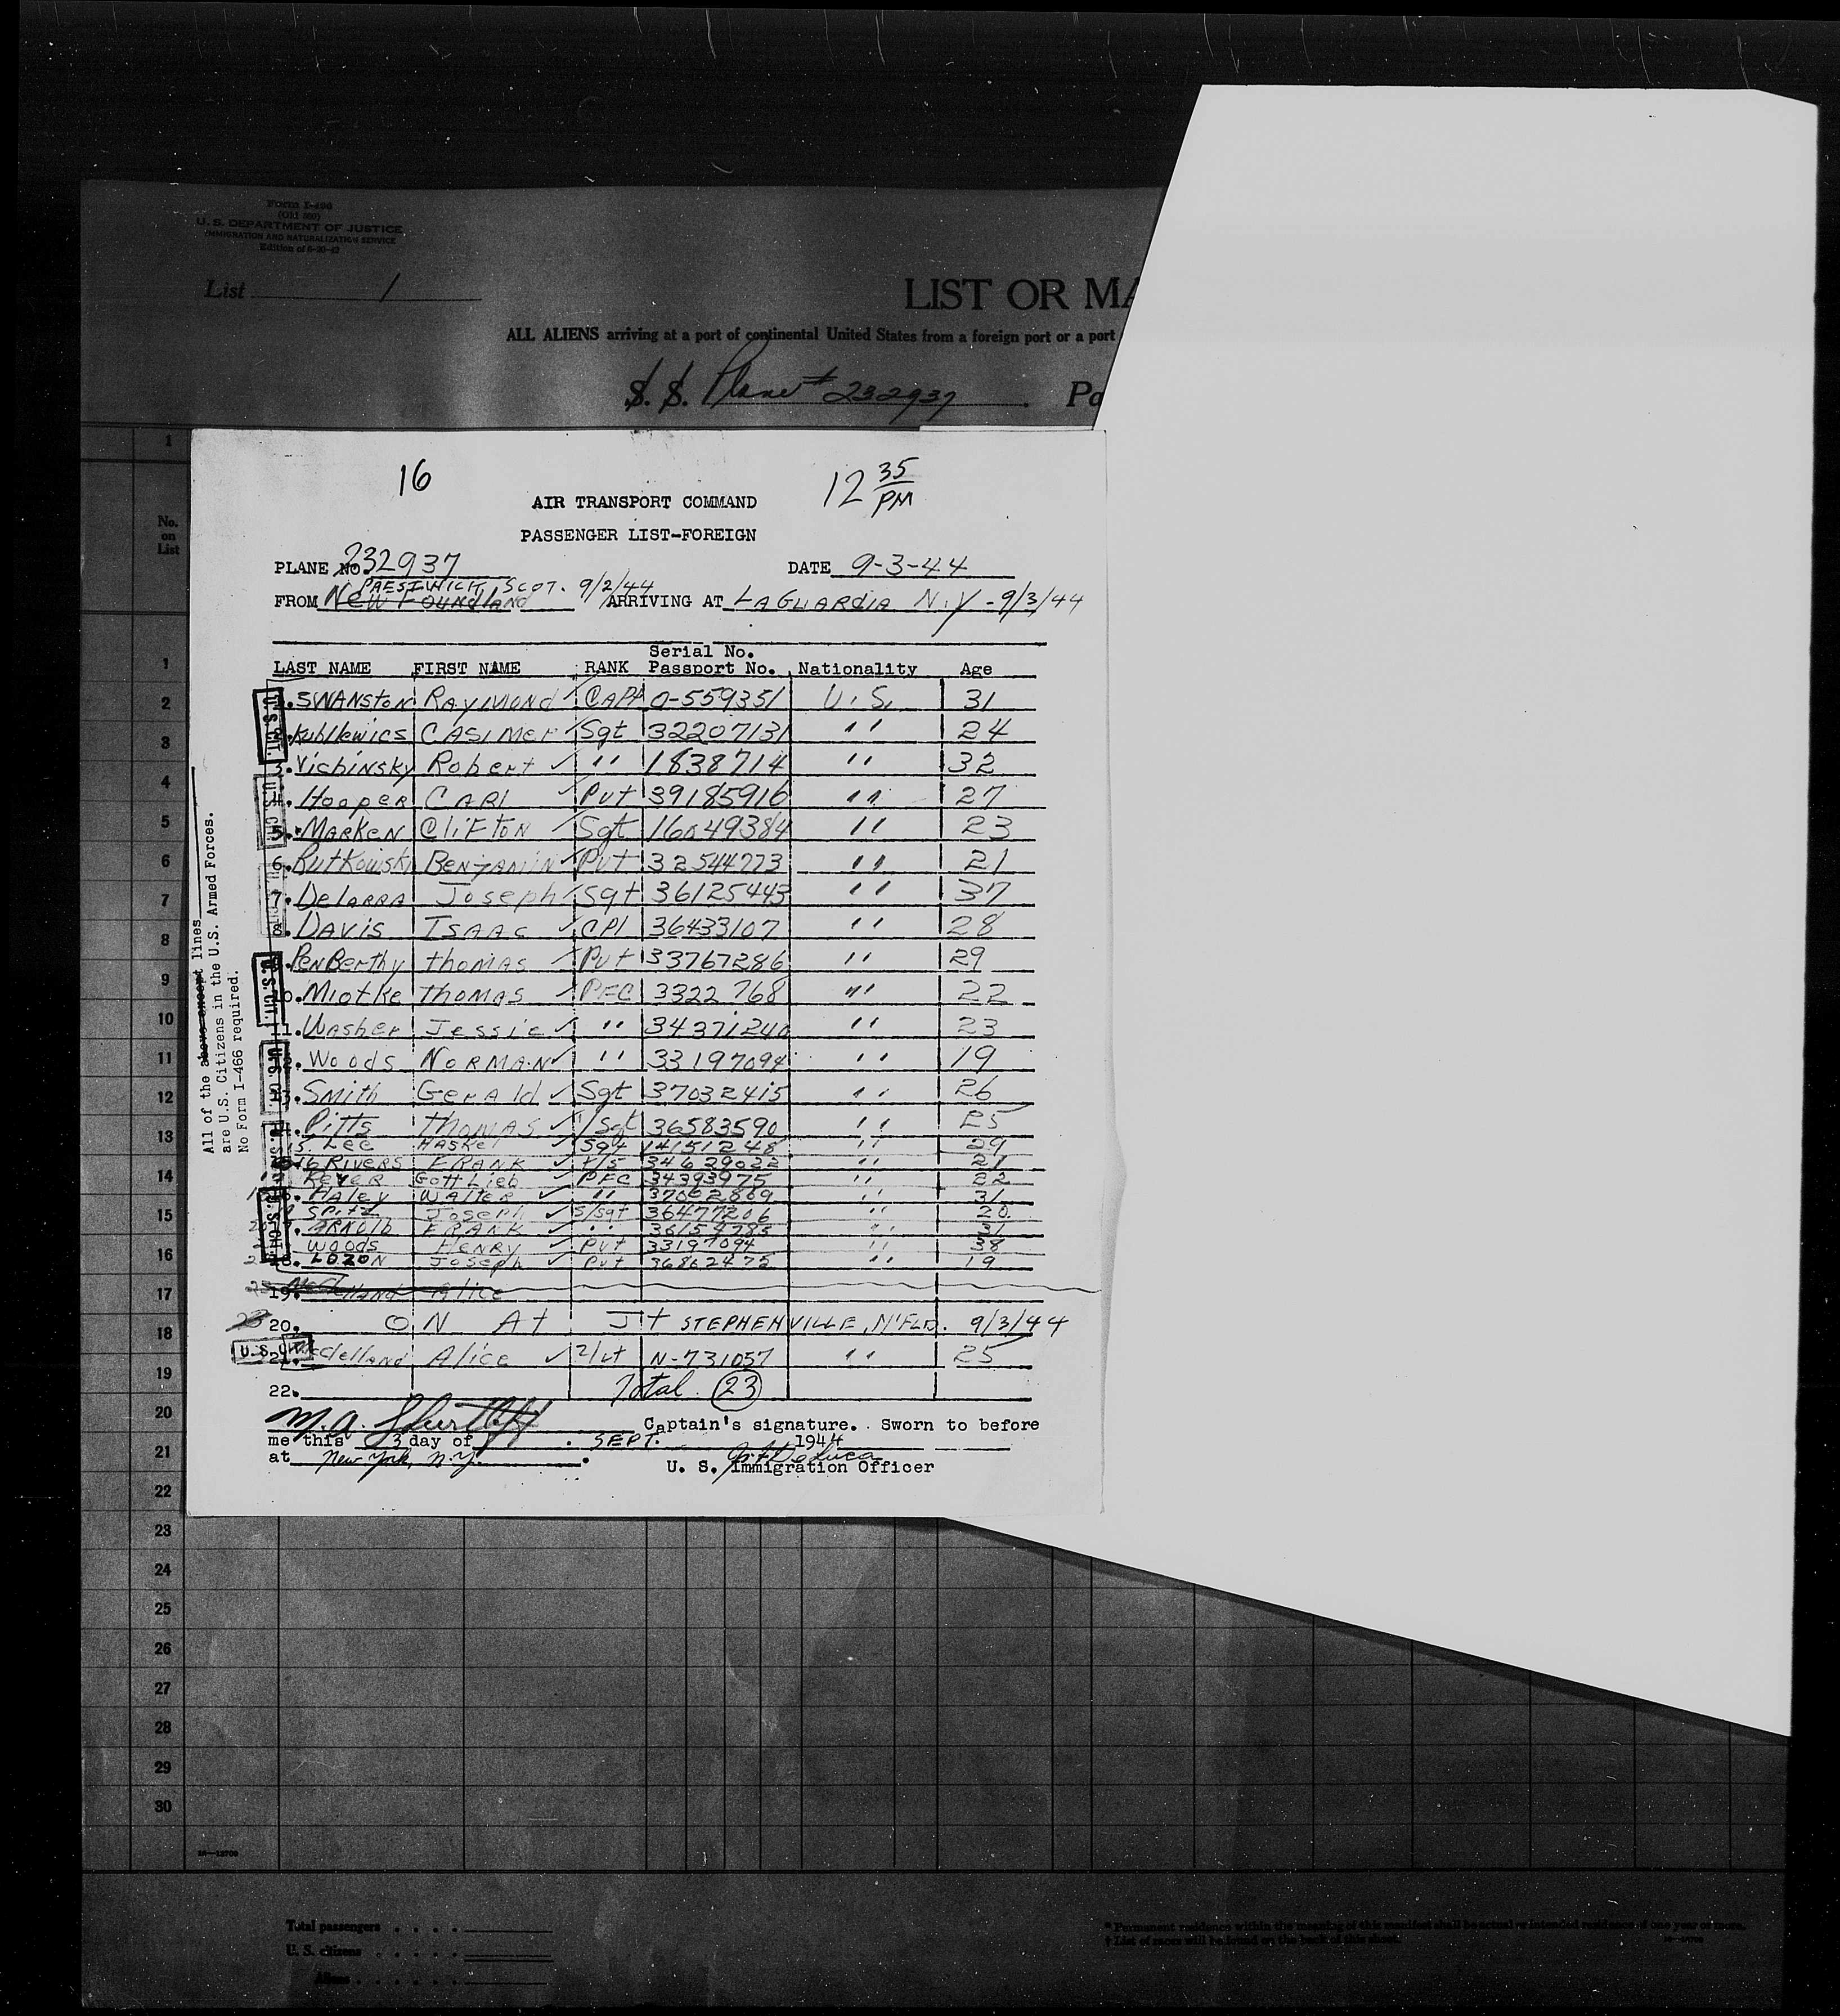 Form I-466
U. S. DEPARTMENT OF JUSTICE
IMMIGRATION AND NATURALIZATION SERVICE
List 1
LIST OR MA
ALL ALIENS arriving at a port of continental United States from a foreign port or a port
S. S. Plane # 232937 . Pa
16
12 35 PM
AIR TRANSPORT COMMAND
PASSENGER LIST-FOREIGN
PLANE NO. 232937 DATE 9-3-44
PRESTWICH, SCOT. 9/2/44
FROM New Foundland ARRIVING AT LAGUARdIA N.Y - 9/3/44
Serial No.
LAST NAME FIRST NAME RANK Passport No. Nationality Age
1. SWANSTON RAYMOND ✓ CAPt 0-559351 U.S. 31
Kublkewics CASIMER ✓ Sgt 32207131 " 24
3. Vichinsky Robert ✓ " 1838714 " 32
4. Hooper CARl ✓ Pvt 39185916 " 27
5. MARKEN CliFTON ✓ Sgt 16049384 " 23
6. Rutkowski BENJAMIN ✓ Pvt 32544773 " 21
7. DeLARRA Joseph ✓ Sgt 36125443 " 37
8. DAVIS ISAAC ✓ CPl 36433107 " 28
9. PenBerthy thomas ✓ Pvt 33767286 " 29
10. Miotke THOMAS ✓ PFC 3322 768 " 22
11. Washer Jessie ✓ " 34371240 " 23
Woods NORMAN ✓ " 33197094 " 19
13. Smith GerAld ✓ Sgt 37032415 " 26
14. Pitts THOMAS ✓ T/Sgt 36583590 " 25
5. Lee HASKel Sgt 14151248 " 29
16 RIVERS FRANK ✓ T/5 34629022 " 21
KEYER GottLieb ✓ PFC 34393975 " 22
18. HALey WALTER ✓ " 37062869 " 31
SPitz Joseph ✓ S/Sgt 36477206 " 20
ARNOLD FRANK ✓ " 36154785 " 31
WOODS HENRY ✓ Pvt 33197094 " 38
LOZON Joseph ✓ Pvt 36862472 " 19
19. McClelland Alice
20. ON At Jt STEPHENVILLE, N'FLD. 9/3/44
21. McClelland Alice ✓ 2/Lt N-731057 " 25
22. Total 23
M.A. Shurtleff Captain's signature. Sworn to before
me this 3 day of SEPT. 1944
at New York, N.Y.
U. S. Immigration Officer
All of the above except lines
are U.S. Citizens in the U.S. Armed Forces.
No Form I-466 required.
U.S. CIT.
U.S. CIT.
U.S. CIT.
U.S. CIT.
U.S. CIT.
No.
on
List
1
1
2
3
4
5
6
7
8
9
10
11
12
13
14
15
16
17
18
19
20
21
22
23
24
25
26
27
28
29
30
Total passengers
U. S. citizens
Aliens
* Permanent residence within the meaning of this manifest shall be actual or intended residence of one year or more.
† List of races will be found on the back of this sheet.